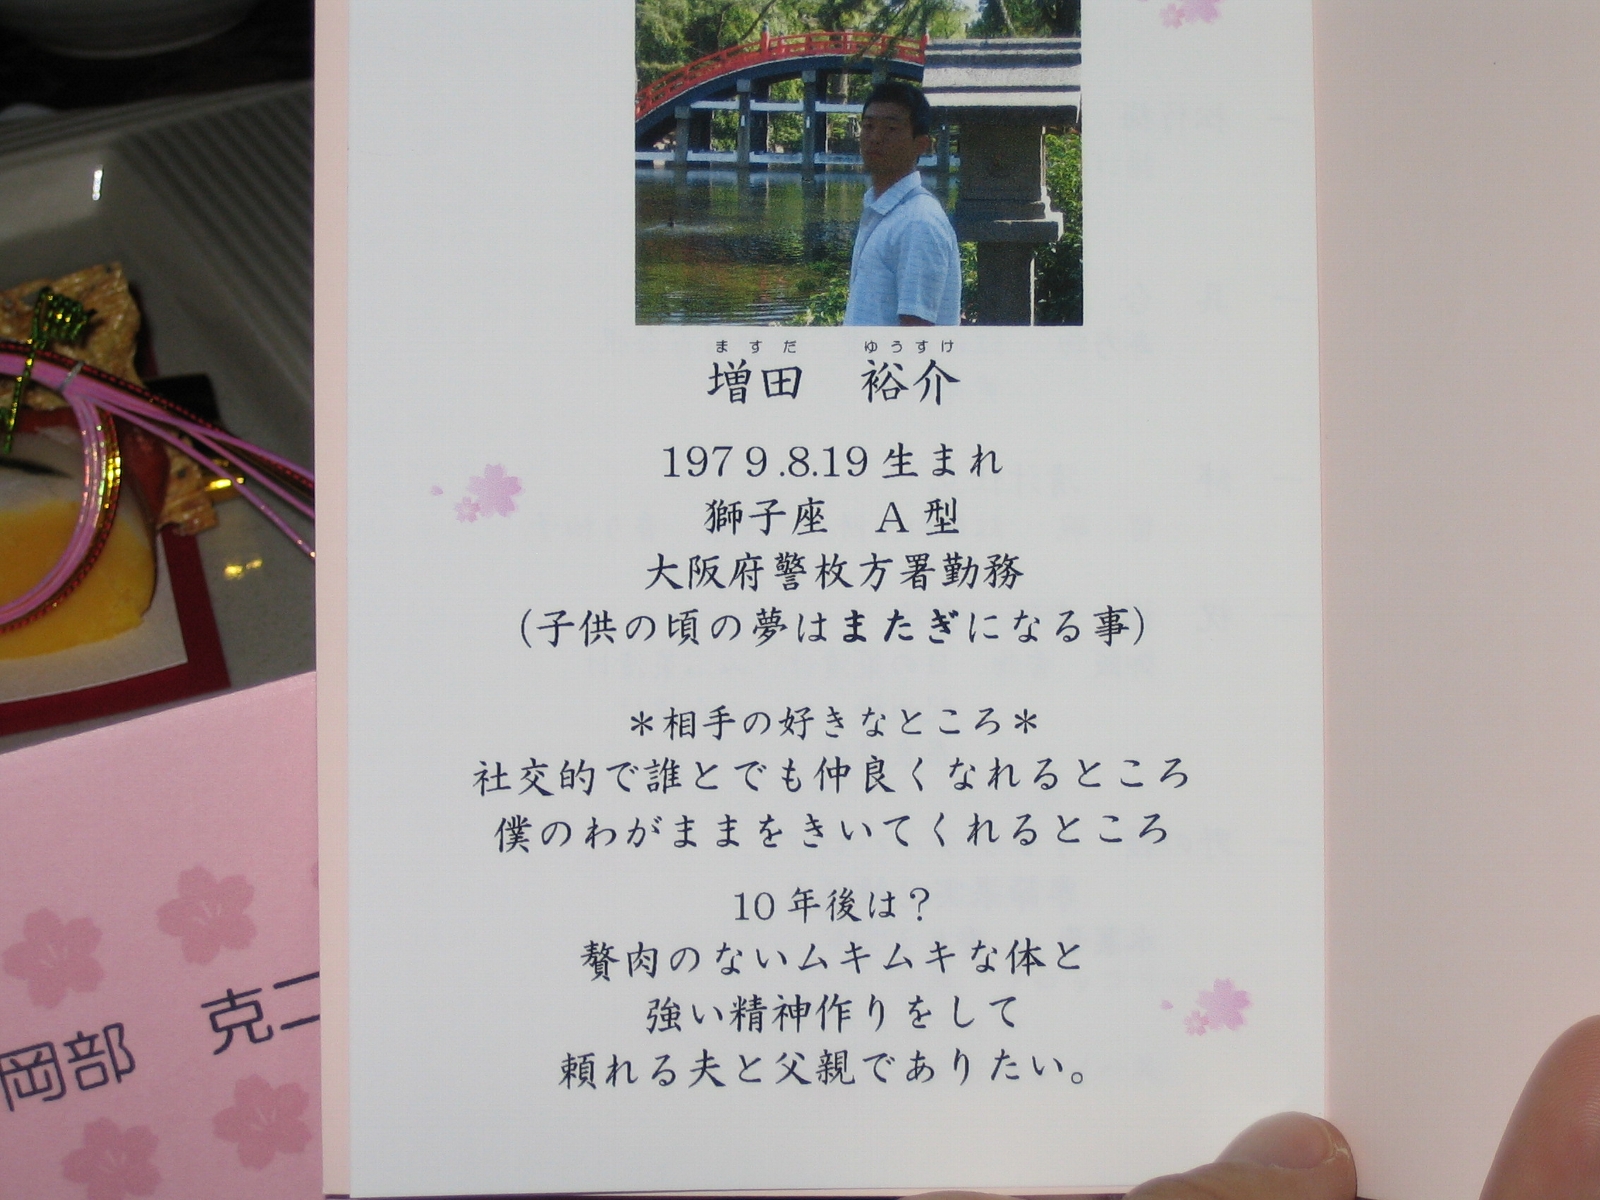 ますだ ゆうすけ
増田 裕介
1979.8.19生まれ
獅子座 A型
大阪府警枚方署勤務
(子供の頃の夢はまたぎになる事)
＊相手の好きなところ＊
社交的で誰とでも仲良くなれるところ
僕のわがままをきいてくれるところ
10年後は?
贅肉のないムキムキな体と
強い精神作りをして
頼れる夫と父親でありたい。
岡部 克二